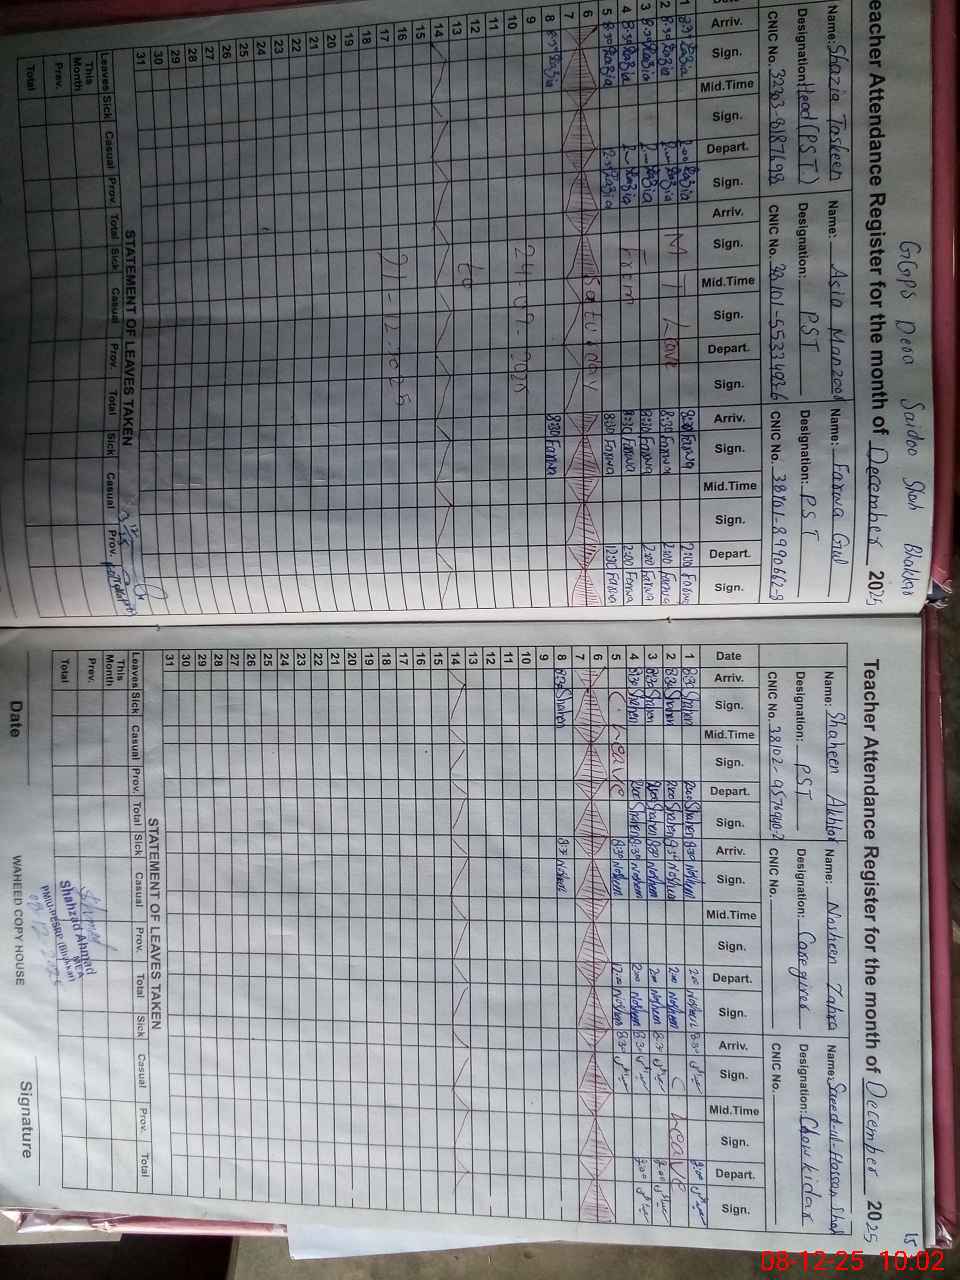 GGPS Dera Saidoo Shah Bhakkar
Teacher Attendance Register for the month of December 2025
Name: Shazia Taskeen
Designation: Head (PST)
CNIC No. 32303-8187698
Name: Asia Manzoor
Designation: PST
CNIC No. 38101-5533493-6
Name: Farwa Gul
Designation: PST
CNIC No. 38101-8990662-8
Date Arriv. Sign. Mid.Time Sign. Depart. Sign. Arriv. Sign. Mid.Time Sign. Depart. Sign. Arriv. Sign. Mid.Time Sign. Depart. Sign.
1 8:30 Farwa 2:00 Farwa
2 M T Leave 8:30 Farwa 2:00 Farwa
3 8:30 Farwa 2:00 Farwa
4 From 8:30 Farwa 2:00 Farwa
5 8:30 Farwa 12:30 Farwa
6 Saturday
7
8 8:30 Farwa
9
10 24-09-2025
11
12
13 to
14
15
16
17 21-12-2025
18
19
20
21
22
23
24
25
26
27
28
29
30
31
STATEMENT OF LEAVES TAKEN
Leaves Sick Casual Prov. Total Sick Casual Prov. Total Sick Casual Prov.
This Month
Prev.
Total
15
Teacher Attendance Register for the month of December 2025
Name: Shaheen Akhtar
Designation: PST
CNIC No. 38102-9576910-2
Name: Nosheen Zahra
Designation: Caregiver
CNIC No.
Name: Saeed-ul-Hassan Shah
Designation: Chowkidar
CNIC No.
Date Arriv. Sign. Mid.Time Sign. Depart. Sign. Arriv. Sign. Mid.Time Sign. Depart. Sign. Arriv. Sign. Mid.Time Sign. Depart. Sign.
1 8:30 Shaheen 2:00 Shaheen 8:30 Nosheen 2:00 Nosheen 8:30 2:00
2 8:30 Shaheen 2:00 Shaheen 8:30 Nosheen 2:00 Nosheen C Leave
3 8:30 Shaheen 2:00 Shaheen 8:30 Nosheen 2:00 Nosheen 8:30 2:00
4 8:30 Shaheen 2:00 Shaheen 8:30 Nosheen 2:00 Nosheen 8:30 2:00
5 C. Leave 8:30 Nosheen 12:00 Nosheen 8:30
6
7
8 8:30 Shaheen 8:30 Nosheen
9
10
11
12
13
14
15
16
17
18
19
20
21
22
23
24
25
26
27
28
29
30
31
STATEMENT OF LEAVES TAKEN
Leaves Sick Casual Prov. Total Sick Casual Prov. Total Sick Casual Prov. Total
This Month
Prev.
Total
Shahzad Ahmad
MEA
PMIU-PESRP (Bhakkar)
08-12-2025
Date
WAHEED COPY HOUSE
Signature
08-12-25 10:02